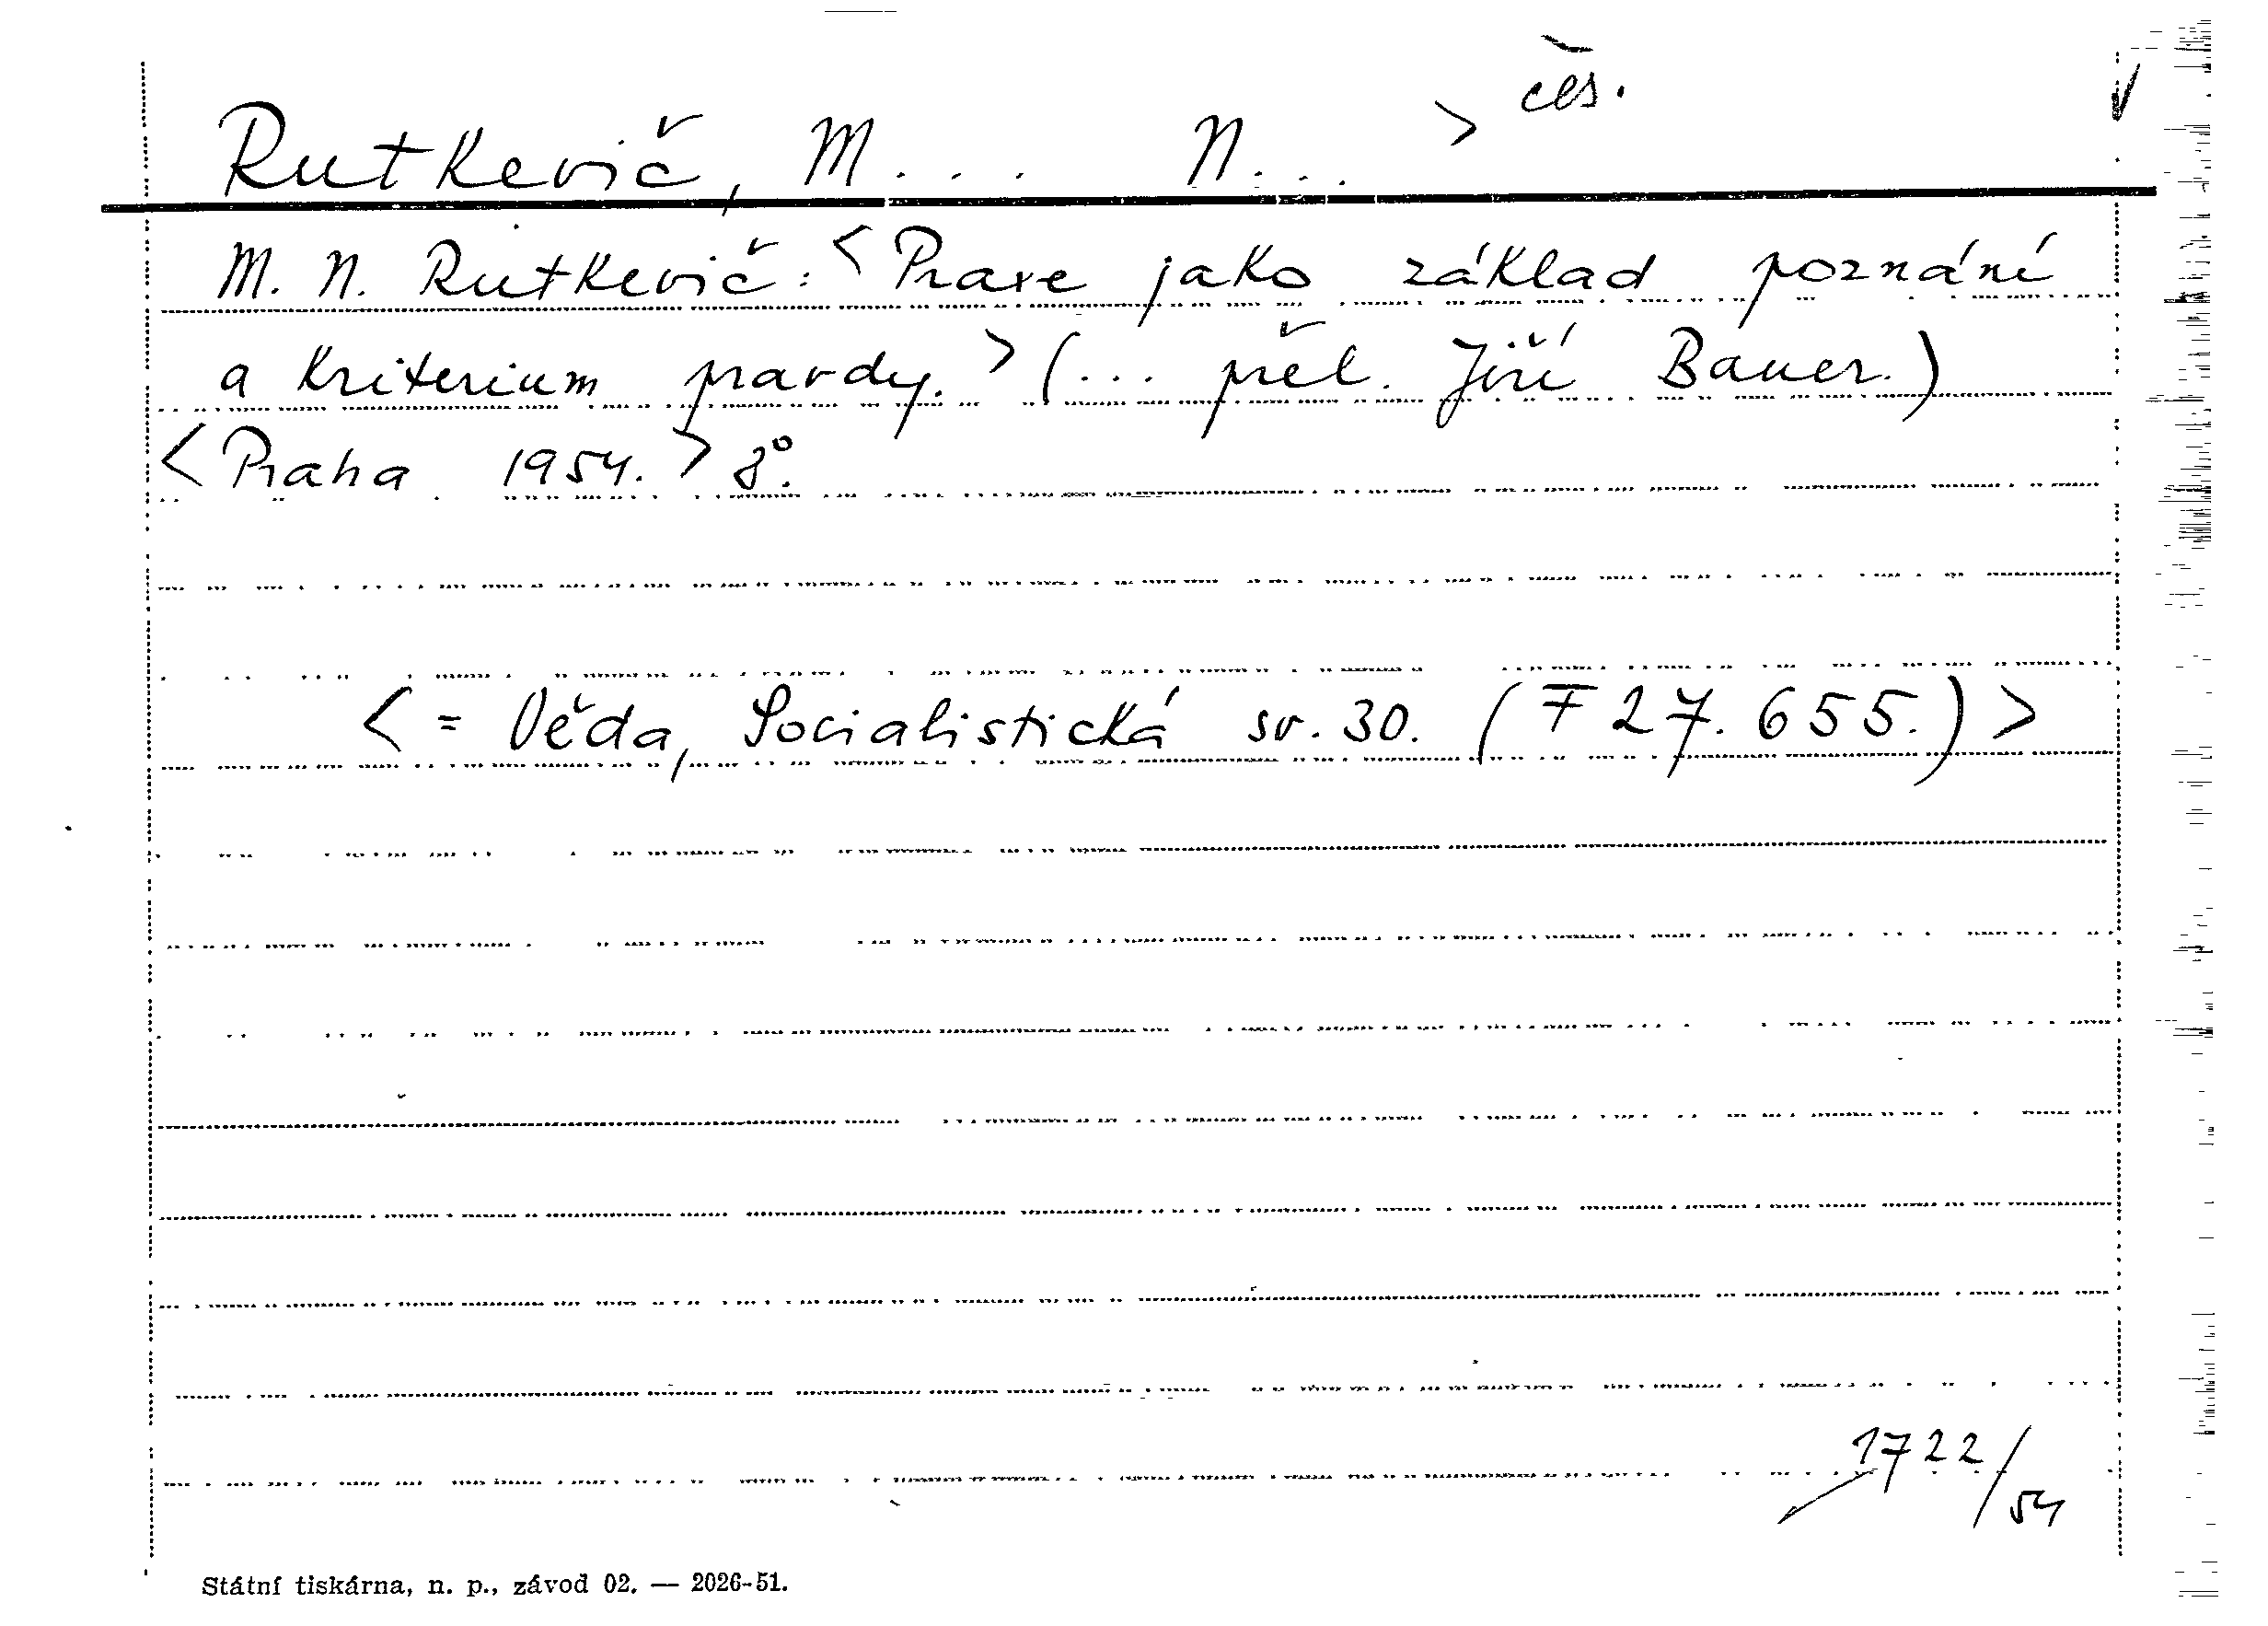 čes.
Rutkevič, M... N... >
M. N. Rutkevič: <Praxe jako základ poznání
a kriterium pravdy.> (... přel. Jiří Bauer.)
<Praha 1954.> 8°.
< = Věda, Socialistická sv. 30. (F 27.655.) >
1722/54
Státní tiskárna, n. p., závod 02. — 2026-51.